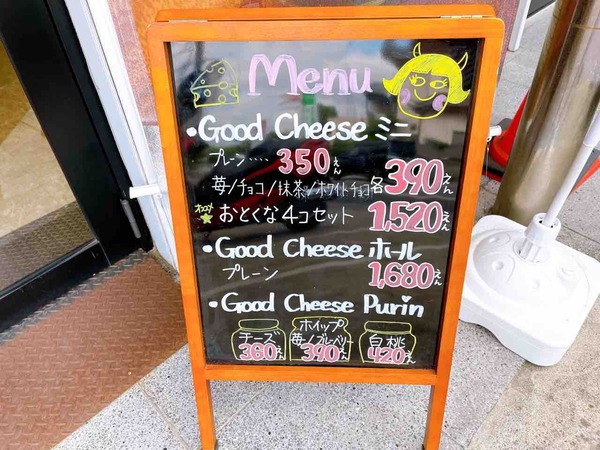 Menu
・Good Cheese ミニ
プレーン‥‥350えん
苺/チョコ/抹茶/ホワイトチョコ各390えん
オススメ おとくな4コセット 1,520えん
・Good Cheese ホール
プレーン 1,680えん
・Good Cheese Purin
チーズ 360えん
ホイップ 苺/ブルーベリー 390えん
白桃 420えん